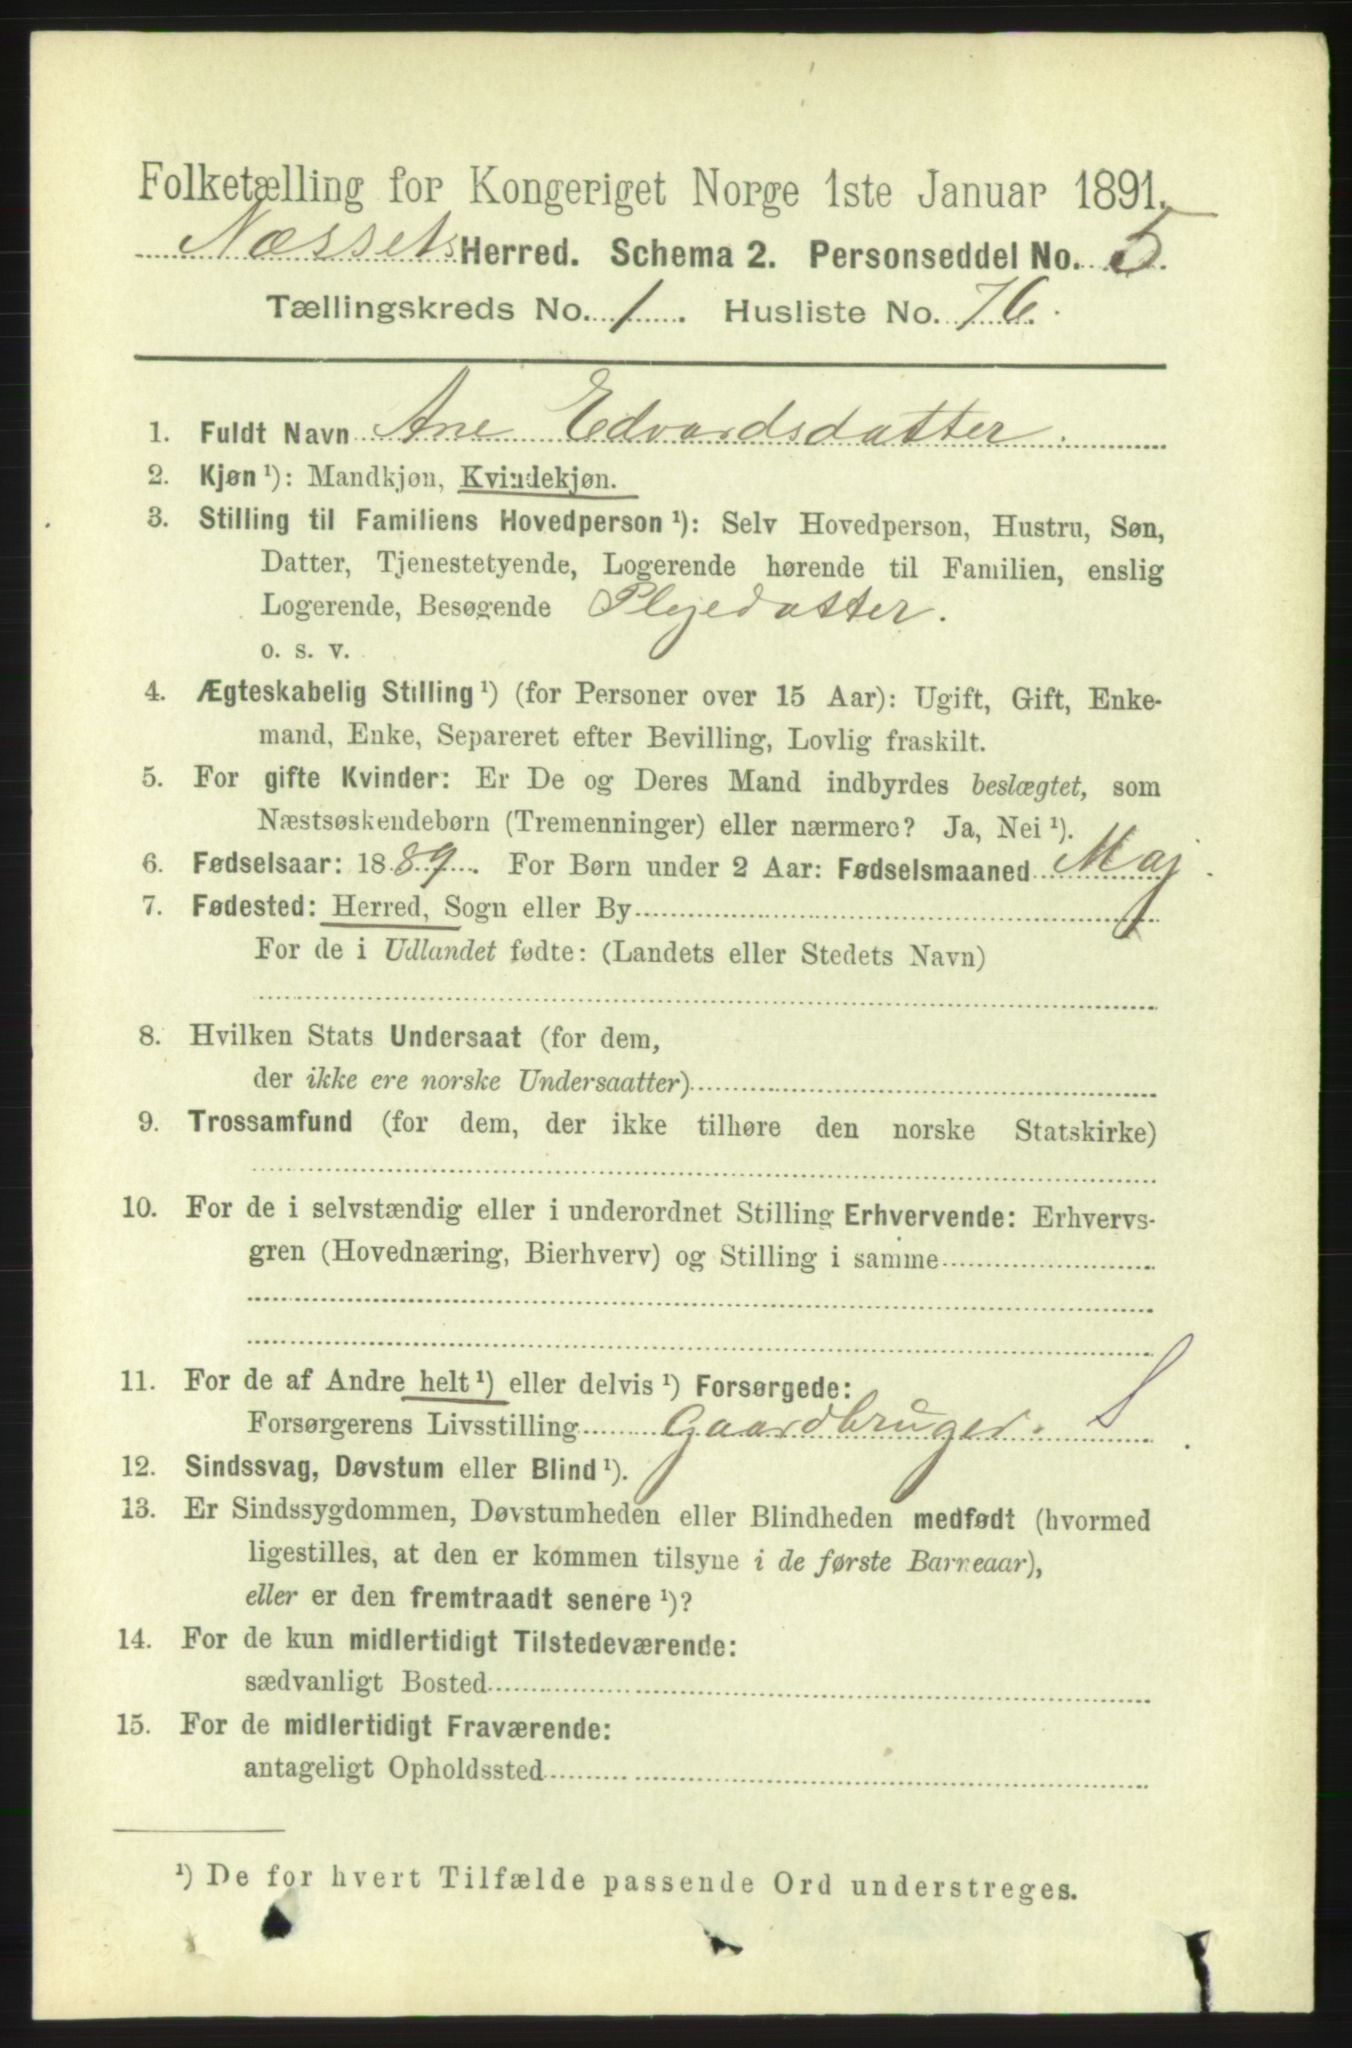 Folketælling for Kongeriget Norge 1ste Januar 1891.
Næssets Herred. Schema 2. Personseddel No. 5.
Tællingskreds No. 1. Husliste No. 76.
1. Fuldt Navn Ane Edvardsdatter.
2. Kjøn ¹): Mandkjøn, Kvindekjøn.
3. Stilling til Familiens Hovedperson ¹): Selv Hovedperson, Hustru, Søn,
Datter, Tjenestetyende, Logerende hørende til Familien, enslig
Logerende, Besøgende Plejedatter.
o. s. v.
4. Ægteskabelig Stilling ¹) (for Personer over 15 Aar): Ugift, Gift, Enke-
mand, Enke, Separeret efter Bevilling, Lovlig fraskilt.
5. For gifte Kvinder: Er De og Deres Mand indbyrdes beslægtet, som
Næstsøskendebørn (Tremenninger) eller nærmere? Ja, Nei ¹).
6. Fødselsaar: 1889. For Børn under 2 Aar: Fødselsmaaned Maj
7. Fødested: Herred, Sogn eller By
For de i Udlandet fødte: (Landets eller Stedets Navn)
8. Hvilken Stats Undersaat (for dem,
der ikke ere norske Undersaatter)
9. Trossamfund (for dem, der ikke tilhøre den norske Statskirke)
10. For de i selvstændig eller i underordnet Stilling Erhvervende: Erhvervs-
gren (Hovednæring, Bierhverv) og Stilling i samme
11. For de af Andre helt ¹) eller delvis ¹) Forsørgede:
Forsørgerens Livsstilling Gaardbruger. S
12. Sindssvag, Døvstum eller Blind ¹).
13. Er Sindssygdommen, Døvstumheden eller Blindheden medfødt (hvormed
ligestilles, at den er kommen tilsyne i de første Barneaar),
eller er den fremtraadt senere ¹)?
14. For de kun midlertidigt Tilstedeværende:
sædvanligt Bosted
15. For de midlertidigt Fraværende:
antageligt Opholdssted
¹) De for hvert Tilfælde passende Ord understreges.